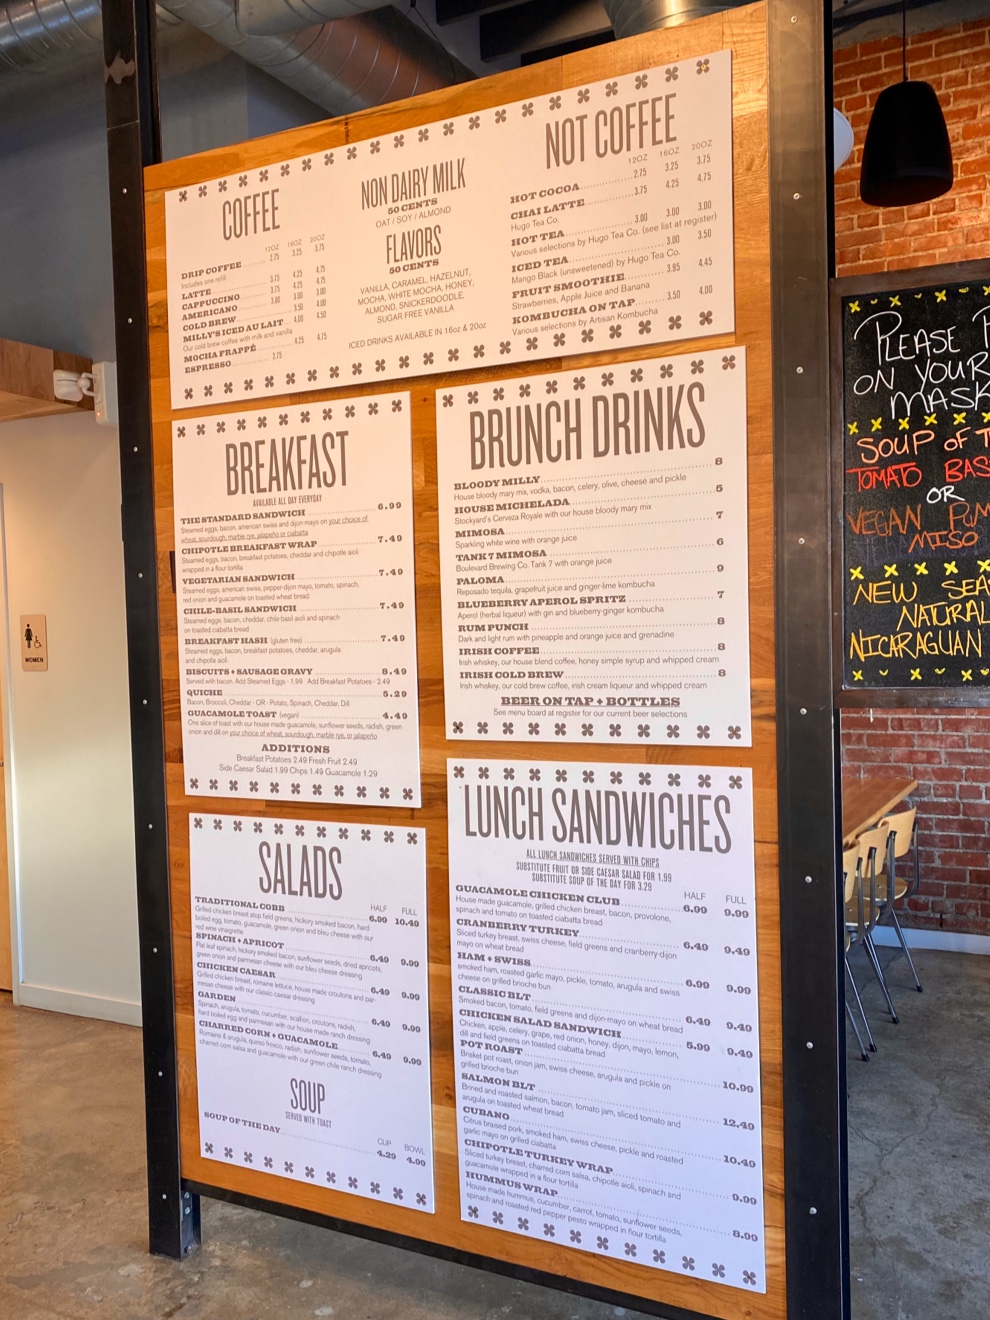 COFFEE
12OZ 16OZ 20OZ
DRIP COFFEE 2.75 3.25 3.75
Includes one refill
LATTE 3.75 4.25 4.75
CAPPUCCINO 3.75 4.25 4.75
AMERICANO 3.00 3.00 3.00
COLD BREW 3.50 4.00
MILLY'S ICED AU LAIT 4.00 4.50
Our cold brew coffee with milk and vanilla
MOCHA FRAPPÉ 4.25 4.75
ESPRESSO 2.75
NON DAIRY MILK
50 CENTS
OAT / SOY / ALMOND
FLAVORS
50 CENTS
VANILLA, CARAMEL, HAZELNUT,
MOCHA, WHITE MOCHA, HONEY,
ALMOND, SNICKERDOODLE,
SUGAR FREE VANILLA
ICED DRINKS AVAILABLE IN 16oz & 20oz
NOT COFFEE
12OZ 16OZ 20OZ
HOT COCOA 2.75 3.25 3.75
CHAI LATTE 3.75 4.25 4.75
Hugo Tea Co.
HOT TEA 3.00 3.00 3.00
Various selections by Hugo Tea Co. (see list at register)
ICED TEA 3.00 3.50
Mango Black (unsweetened) by Hugo Tea Co.
FRUIT SMOOTHIE 3.95 4.45
Strawberries, Apple Juice and Banana
KOMBUCHA ON TAP 3.50 4.00
Various selections by Artisan Kombucha
BREAKFAST
AVAILABLE ALL DAY EVERYDAY
THE STANDARD SANDWICH 6.99
Steamed eggs, bacon, american swiss and dijon mayo on your choice of
wheat, sourdough, marble rye, jalapeño or ciabatta
CHIPOTLE BREAKFAST WRAP 7.49
Steamed eggs, bacon, breakfast potatoes, cheddar and chipotle aioli
wrapped in a flour tortilla
VEGETARIAN SANDWICH 7.49
Steamed eggs, american swiss, pepper-dijon mayo, tomato, spinach,
red onion and guacamole on toasted wheat bread
CHILE-BASIL SANDWICH 7.49
Steamed eggs, bacon, cheddar, chile-basil aioli and spinach
on toasted ciabatta bread
BREAKFAST HASH (gluten free) 7.49
Steamed eggs, bacon, breakfast potatoes, cheddar, arugula
and chipotle aioli
BISCUITS + SAUSAGE GRAVY 8.49
Served with bacon. Add Steamed Eggs - 1.99 Add Breakfast Potatoes - 2.49
QUICHE 5.29
Bacon, Broccoli, Cheddar - OR - Potato, Spinach, Cheddar, Dill
GUACAMOLE TOAST (vegan) 4.49
One slice of toast with our house made guacamole, sunflower seeds, radish, green
onion and dill on your choice of wheat, sourdough, marble rye, or jalapeño
ADDITIONS
Breakfast Potatoes 2.49 Fresh Fruit 2.49
Side Caesar Salad 1.99 Chips 1.49 Guacamole 1.29
BRUNCH DRINKS
BLOODY MILLY 8
House bloody mary mix, vodka, bacon, celery, olive, cheese and pickle
HOUSE MICHELADA 5
Stockyard's Cerveza Royale with our house bloody mary mix
MIMOSA 7
Sparkling white wine with orange juice
TANK 7 MIMOSA 6
Boulevard Brewing Co. Tank 7 with orange juice
PALOMA 9
Reposado tequila, grapefruit juice and ginger-lime kombucha
BLUEBERRY APEROL SPRITZ 7
Aperol (herbal liqueur) with gin and blueberry-ginger kombucha
RUM PUNCH 8
Dark and light rum with pineapple and orange juice and grenadine
IRISH COFFEE 8
Irish whiskey, our house blend coffee, honey simple syrup and whipped cream
IRISH COLD BREW 8
Irish whiskey, our cold brew coffee, irish cream liqueur and whipped cream
BEER ON TAP + BOTTLES
See menu board at register for our current beer selections
SALADS
HALF FULL
TRADITIONAL COBB 6.99 10.49
Grilled chicken breast atop field greens, hickory smoked bacon, hard
boiled egg, tomato, guacamole, green onion and bleu cheese with our
red wine vinaigrette
SPINACH + APRICOT 6.49 9.99
Flat leaf spinach, hickory smoked bacon, sunflower seeds, dried apricots,
green onion and parmesan cheese with our bleu cheese dressing
CHICKEN CAESAR 6.49 9.99
Grilled chicken breast, romaine lettuce, house made croutons and par-
mesan cheese with our classic caesar dressing
GARDEN 6.49 9.99
Spinach, arugula, tomato, cucumber, scallion, croutons, radish,
hard boiled egg and parmesan with our house made ranch dressing
CHARRED CORN + GUACAMOLE 6.49 9.99
Romaine & arugula, queso fresco, radish, sunflower seeds, tomato,
charred corn salsa and guacamole with our green chile ranch dressing
SOUP
SERVED WITH TOAST
CUP BOWL
SOUP OF THE DAY 4.29 4.99
LUNCH SANDWICHES
ALL LUNCH SANDWICHES SERVED WITH CHIPS
SUBSTITUTE FRUIT OR SIDE CAESAR SALAD FOR 1.99
SUBSTITUTE SOUP OF THE DAY FOR 3.29
HALF FULL
GUACAMOLE CHICKEN CLUB 6.99 9.99
House made guacamole, grilled chicken breast, bacon, provolone,
spinach and tomato on toasted ciabatta bread
CRANBERRY TURKEY 6.49 9.49
Sliced turkey breast, swiss cheese, field greens and cranberry-dijon
mayo on wheat bread
HAM + SWISS 6.99 9.99
smoked ham, roasted garlic mayo, pickle, tomato, arugula and swiss
cheese on grilled brioche bun
CLASSIC BLT 6.49 9.49
Smoked bacon, tomato, field greens and dijon-mayo on wheat bread
CHICKEN SALAD SANDWICH 5.99 9.49
Chicken, apple, celery, grape, red onion, honey, dijon, mayo, lemon,
dill and field greens on toasted ciabatta bread
POT ROAST 10.99
Brisket pot roast, onion jam, swiss cheese, arugula and pickle on
grilled brioche bun
SALMON BLT 12.49
Brined and roasted salmon, bacon, tomato jam, sliced tomato and
arugula on toasted wheat bread
CUBANO 10.49
Citrus braised pork, smoked ham, swiss cheese, pickle and roasted
garlic mayo on grilled ciabatta
CHIPOTLE TURKEY WRAP 9.99
Sliced turkey breast, charred corn salsa, chipotle aioli, spinach and
guacamole wrapped in a flour tortilla
HUMMUS WRAP 8.99
House made hummus, cucumber, carrot, tomato, sunflower seeds,
spinach and roasted red pepper pesto wrapped in flour tortilla
WOMEN
PLEASE P
ON YOUR
MASK
SOUP OF T
TOMATO BAS
OR
VEGAN PUM
MISO
NEW SEA
NATURAL
NICARAGUAN